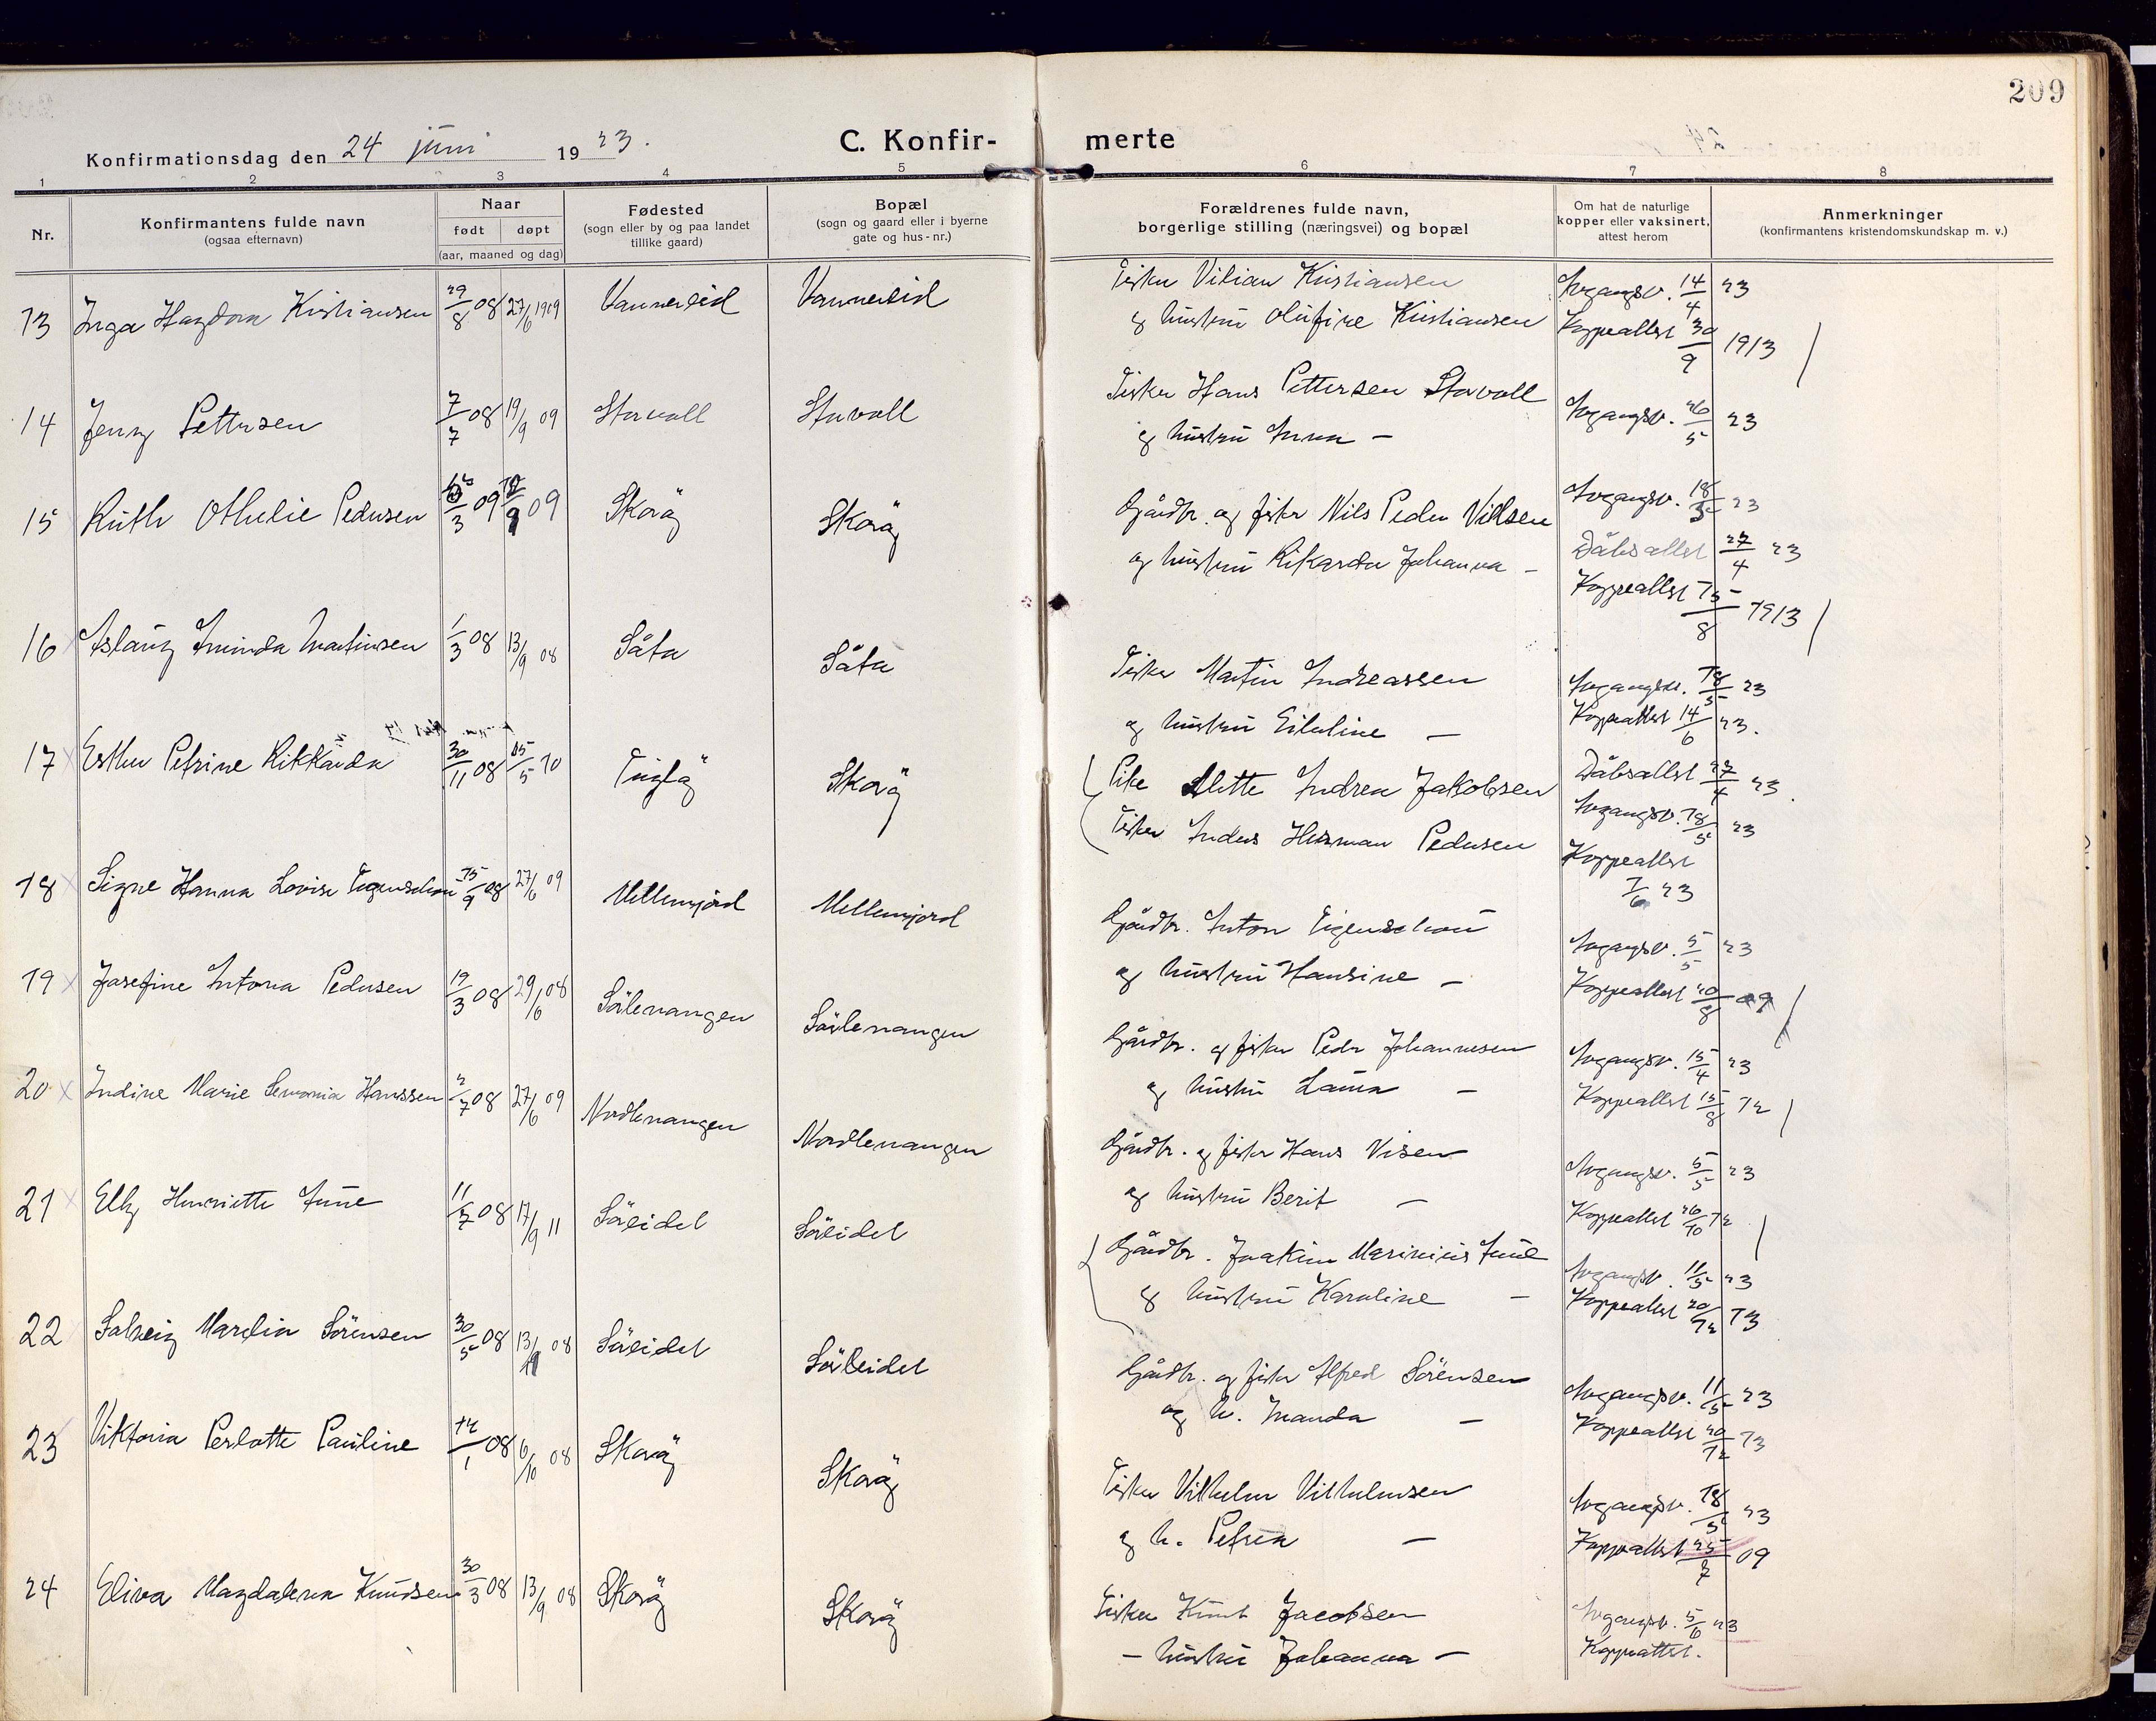 209
C. Konfir- merte
Konfirmationsdag den 24 juni 1923.
1 2 3 4 5 6 7 8
Nr.
Konfirmantens fulde navn
(ogsaa efternavn)
Naar
født døpt
(aar, maaned og dag)
Fødested
(sogn eller by og paa landet
tillike gaard)
Bopæl
(sogn og gaard eller i byerne
gate og hus-nr.)
Forældrenes fulde navn,
borgerlige stilling (næringsvei) og bopæl
Om hat de naturlige
kopper eller vaksinert,
attest herom
Anmerkninger
(konfirmantens kristendomskundskap m. v.)
13 Inga Hagdora Kristiansen 29/8 08 27/6 1909 Vannereid Vannereid
Fisker Vilian Kristiansen
og hustru Olufine Kristiansen
Avgangsv. 14/4 23
Koppeattest 30/9 1913
14 Jenny Pettersen 7/7 08 19/9 09 Storvoll Storvoll
Fisker Hans Pettersen Storvoll
og hustru Anna —
Avgangsv. 26/5 23
15 Ruth Othelie Pedersen /3 09 12/9 09 Skorøy Skorøy
Gårdbr. og fisker Nils Peder Nilsen
og hustru Rikarda Johanna —
Avgangsv. 18/5 23
Dåbsattest 27/4 23
Koppeattest 15/8 1913
16 Aslaug Aminda Martinsen 1/3 08 13/9 08 Såta Såta
Fisker Martin Andreassen
og hustru Eileline —
Avgangsv. 18/5 23
Koppeattest 14/6 23.
17 Esther Petrine Rikkarda 30/11 08 15/5 10 Fugløy Skorøy
Pike Mette Andrea Jakobsen
Fisker Anders Herman Pedersen
Dåbsattest 27/4 23.
Avgangsv. 18/5 23
Koppeattest
7/6 23
18 Signe Hanna Lovise Figenschou 15/9 08 27/6 09 Mellemjord Mellemjord
Gårdbr. Anton Figenschou
og hustru Hansine —
Avgangsv. 5/5 23
Koppeattest 20/8 09
19 Josefine Antona Pedersen 19/3 08 29/6 08 Sörlenangen Sörlenangen
Gårdbr. og fisker Peder Johannesen
og hustru Laura —
Avgangsv. 15/4 23
Koppeattest 15/8 12
20 Indine Marie Hanssen 2/7 08 27/6 09 Nordlenangen Nordlenangen
Gårdbr. og fisker Hans Nisen
og hustru Berit —
Avgangsv. 5/5 23
Koppeattest 26/10 12
21 Elly Henriette Aune 11/7 08 17/9 11 Söreidet Söreidet
Gårdbr. Joakim Marinius Aune
og hustru Karoline —
Avgangsv. 11/5 23
Koppeattest 20/12 13
22 Solveig Mardia Sörensen 30/5 08 13/ 08 Söreidet Söreidet
Gårdbr. og fisker Alfred Sörensen
og h. Amanda —
Avgangsv. 11/5 23
Koppeattest 20/12 13
23 Viktoria Perlotte Pauline 12/1 08 6/10 08 Skorøy Skorøy
Fisker Vilhelm Vilhelmsen
og h. Petrea —
Avgangsv. 18/5 23
Koppeattest 25/7 09
24 Eliva Magdalena Knudsen 30/3 08 13/9 08 Skorøy Skorøy
Fisker Knut Jacobsen
— hustru Johanna —
Avgangsv. 5/6 23
Koppeattest.